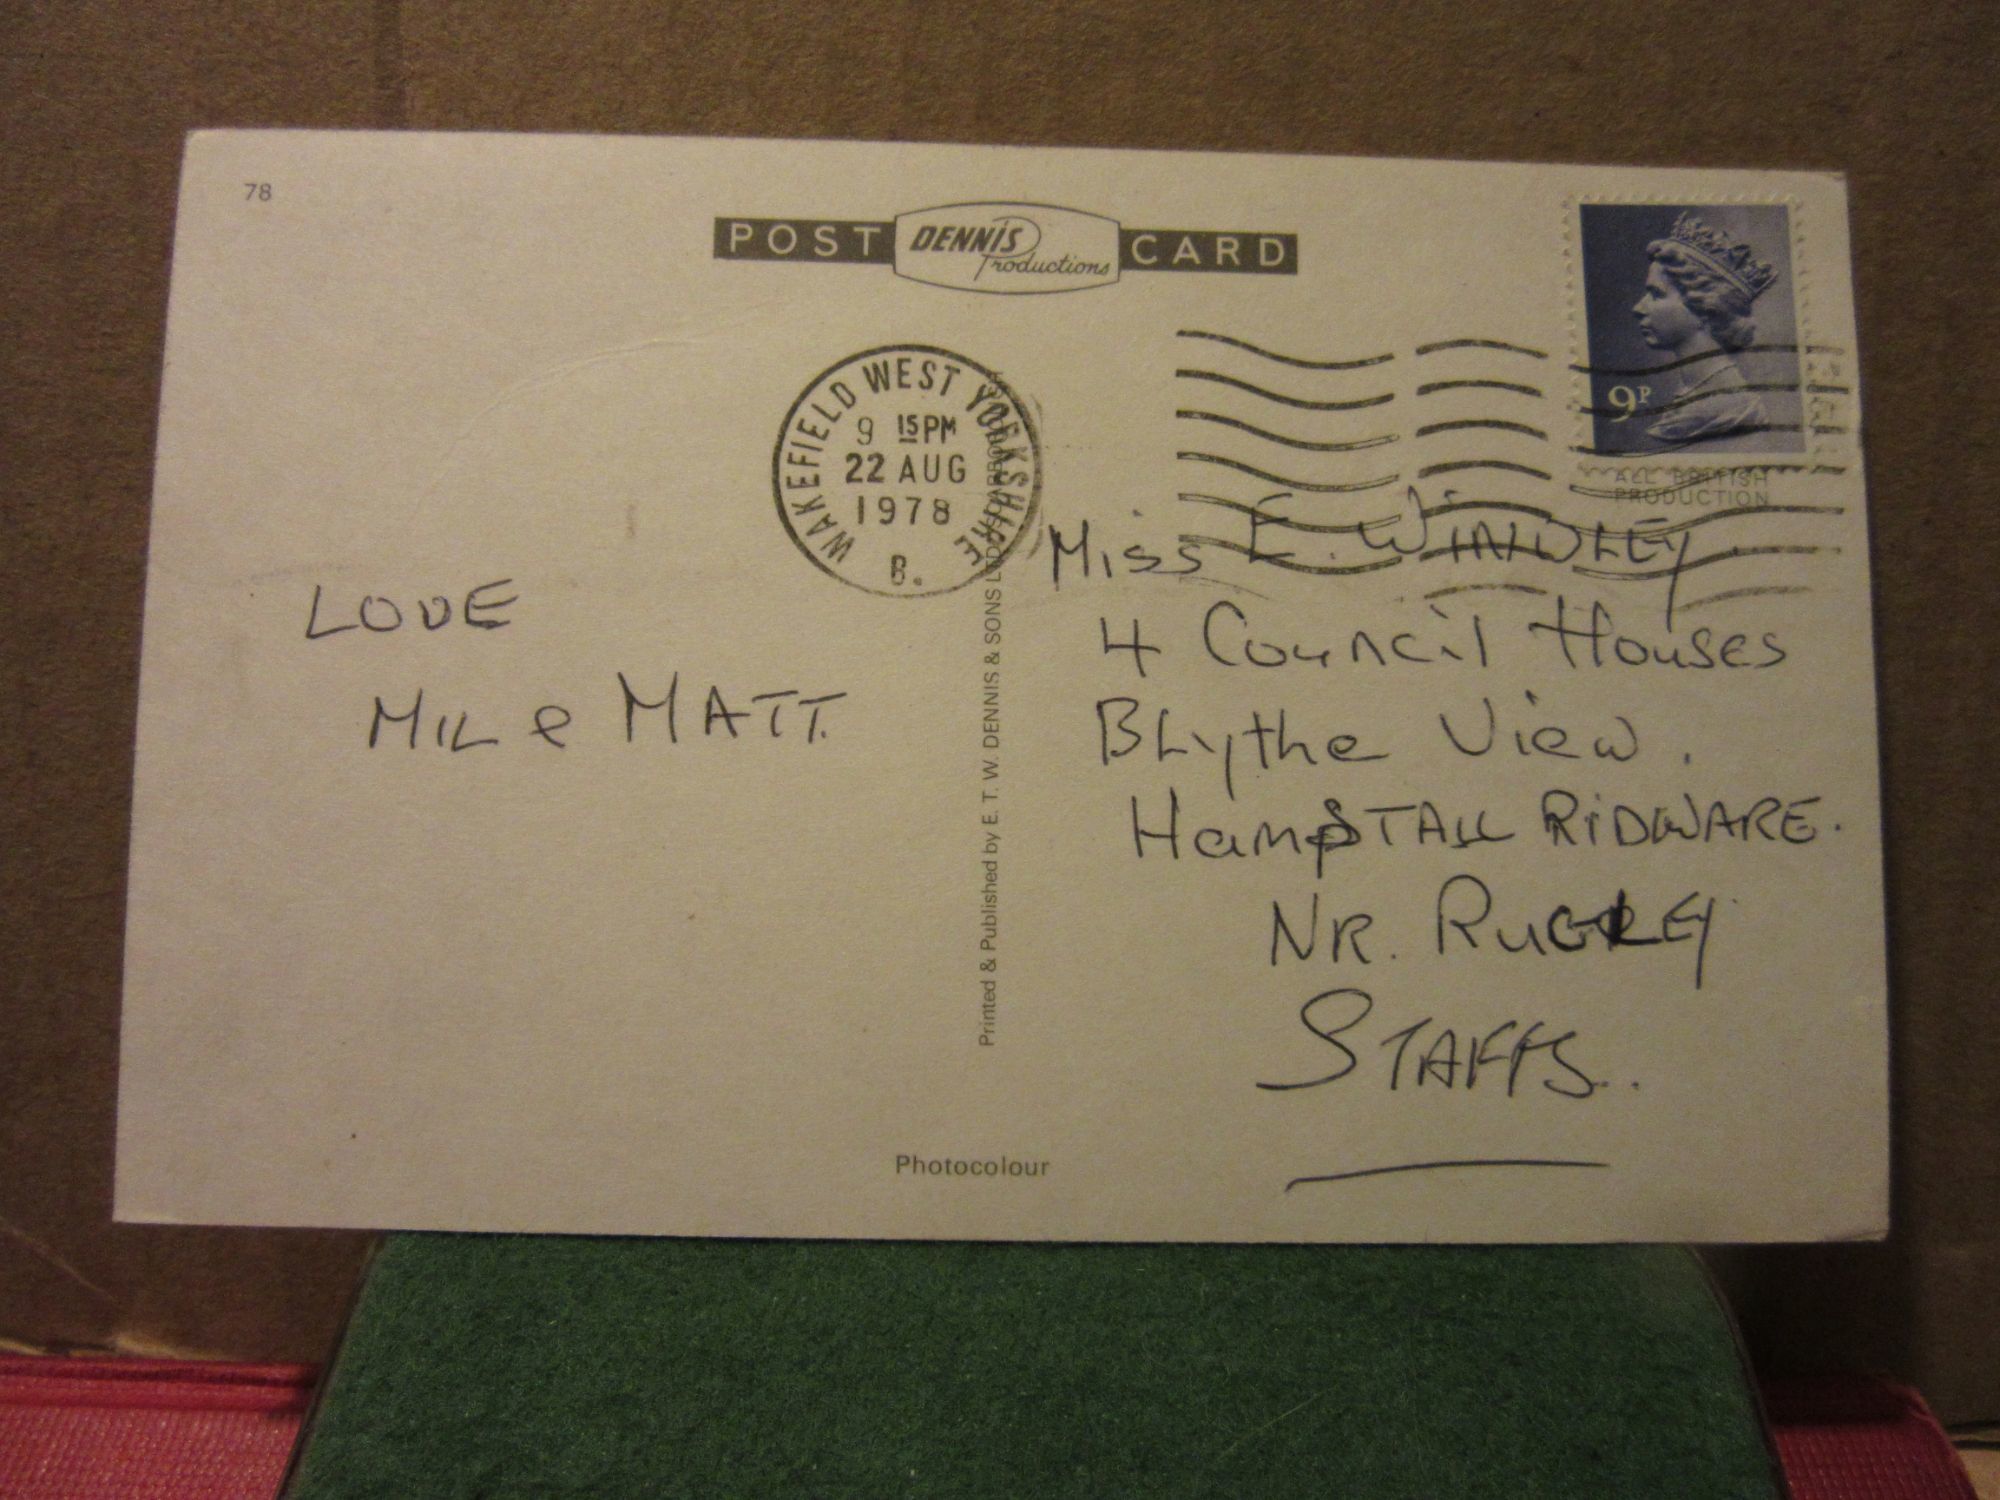 78
POST DENNIS Productions CARD
WAKEFIELD WEST YORKSHIRE
9 15 PM
22 AUG
1978
B.
9P
ALL BRITISH
PRODUCTION
LOVE
MIL & MATT.
Miss E. WINDLEY.
4 Council Houses
BLythe View.
HampSTALL RIDWARE.
NR. RUGELEY
STAFFS.
Printed & Published by E. T. W. DENNIS & SONS LTD., SCARBOROUGH
Photocolour